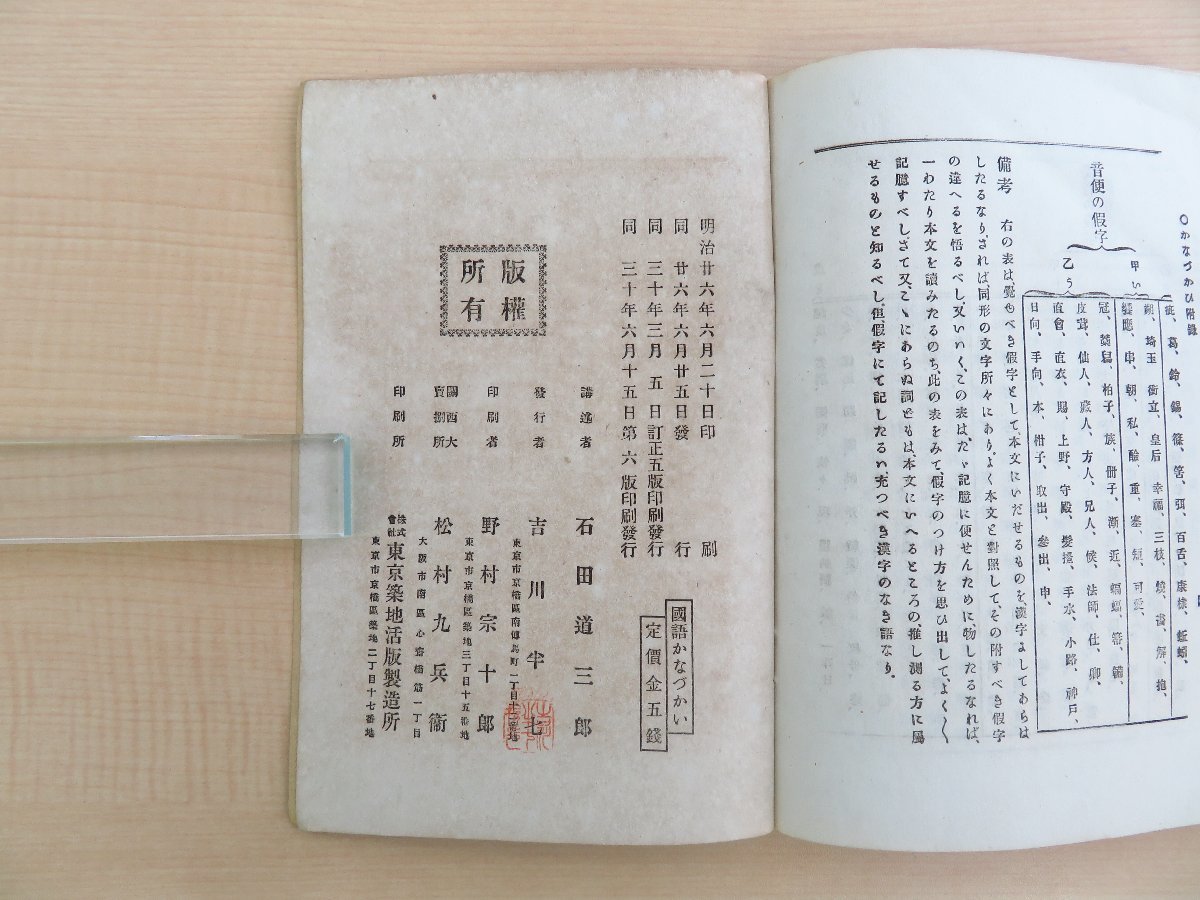 〇かなづかひ附録
音便の假字
甲 い
乙 う
葛、鈴、錫、篠、筈、弭、百舌、
埼玉 衝立、皇后 幸福、三枝、
串、朝、私、
冠、柏子、族、冊子、漸、近、蝙蝠、箒、
仙人、藏人、方人、兄人、候、法師、仕、
直會、直衣、賜、上野、守殿、髮搔、手水、小路、神戸、
日向、手向、本、柑子、取出、參出、申、
備考 右の表は、覺ゆべき假字として、本文にいだせるものを、漢字よしてあらは
したるなり、されば、同形の文字所々にあり、よく本文と對照して、その附すべき假字
の違へるを悟るべし、又いく、この表は、たゞ記臆に便せんために、物したるなれば、
一わたり本文を讀みたるのち、此の表をみて、假字のつけ方を思ひ出して、よく〱
記臆すべし、さて又、こゝにあらぬ詞どもは、本文にいへるところの、推し測る方に屬
せるものと知るべし、但、假字にて記したるハ、充つべき漢字のなき語なり、
國語かなづかい
定價金五錢
明治廿六年六月二十日印刷
同 廿六年六月廿五日發行
同 三十年三月 五 日訂正五版印刷發行
同 三十年六月十五日第六版印刷發行
版權所有
講述者 石田道三郎
東京市京橋區南傳馬町一丁目十二番地
發行者 吉川半七
東京市京橋區築地三丁目十五番地
印刷者 野村宗十郎
大阪市南區心齋橋筋一丁目
關西大賣捌所 松村九兵衞
印刷所 株式會社 東京築地活版製造所
東京市京橋區築地二丁目十七番地